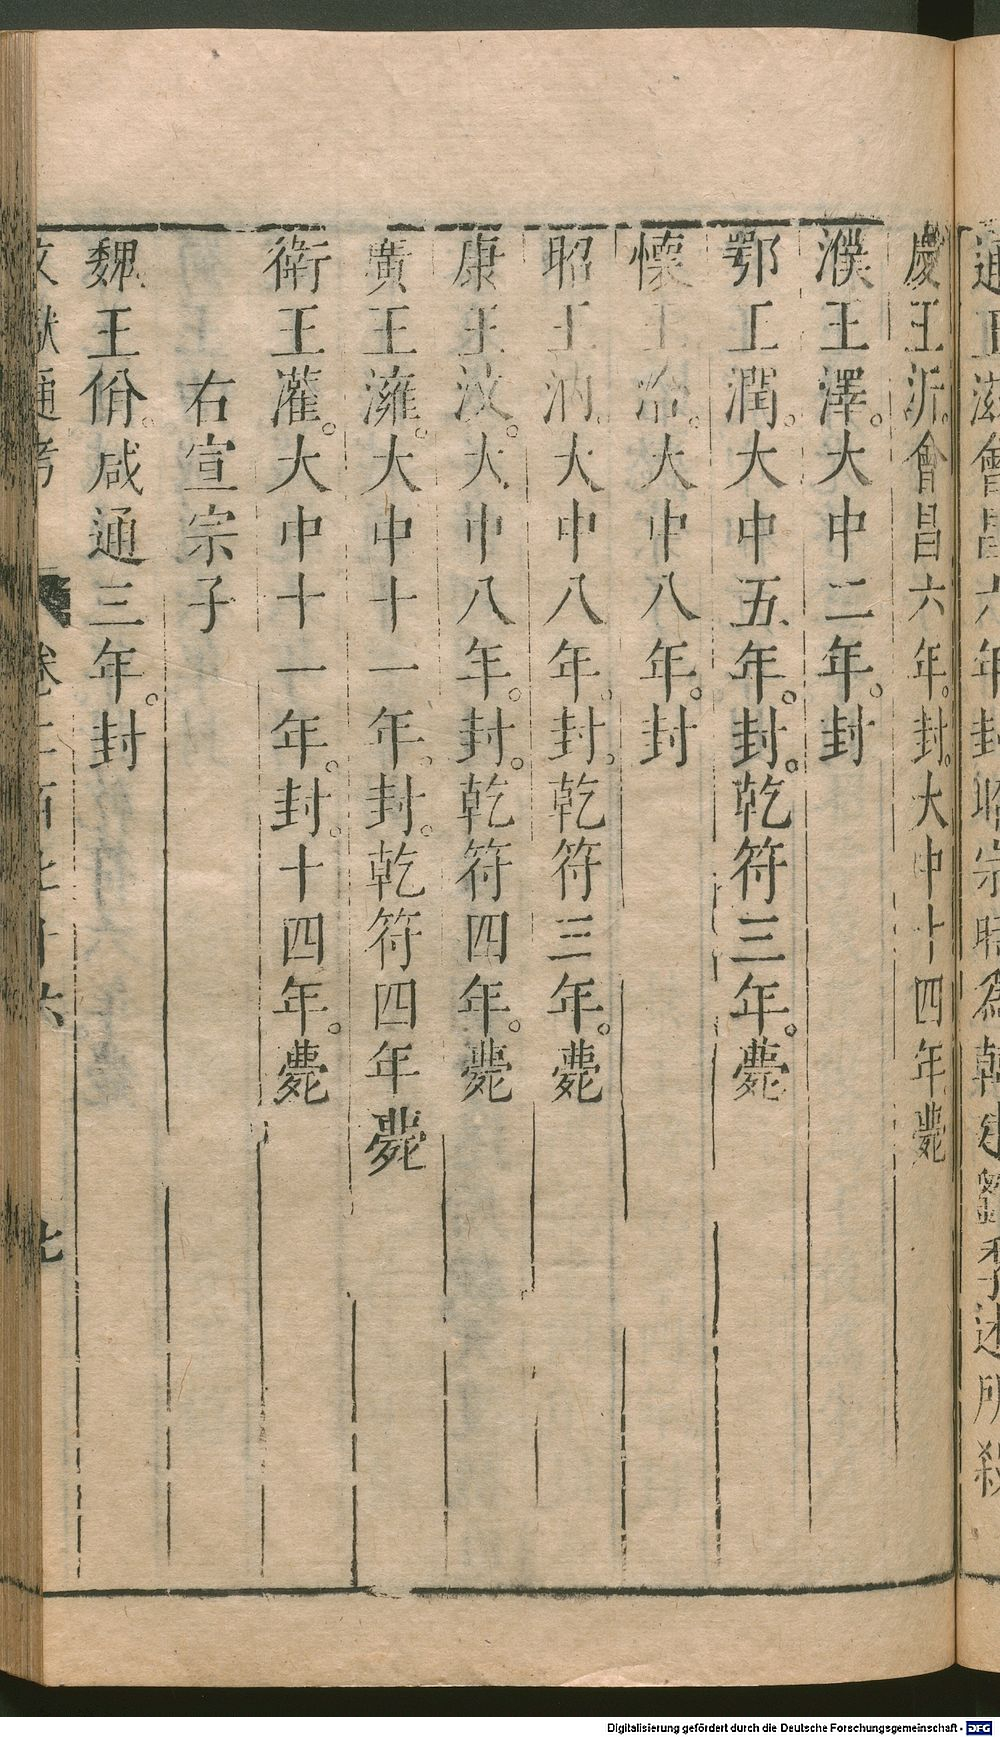 通王滋會昌六年封昭宗時為韓建劉季述所殺
慶王沂。會昌六年。封。大中十四年薨
濮王澤。大中二年。封
鄂王潤。大中五年。封。乾符三年。薨
懷王洽。大中八年。封
昭王汭。大中八年。封。乾符三年。薨
康王汶。大中八年。封。乾符四年。薨
廣王澭。大中十一年。封。乾符四年薨
衛王灌。大中十一年。封。十四年。薨
右宣宗子
魏王佾。咸通三年。封
文獻通考
卷二百七十六
七
Digitalisierung gefördert durch die Deutsche Forschungsgemeinschaft - DFG